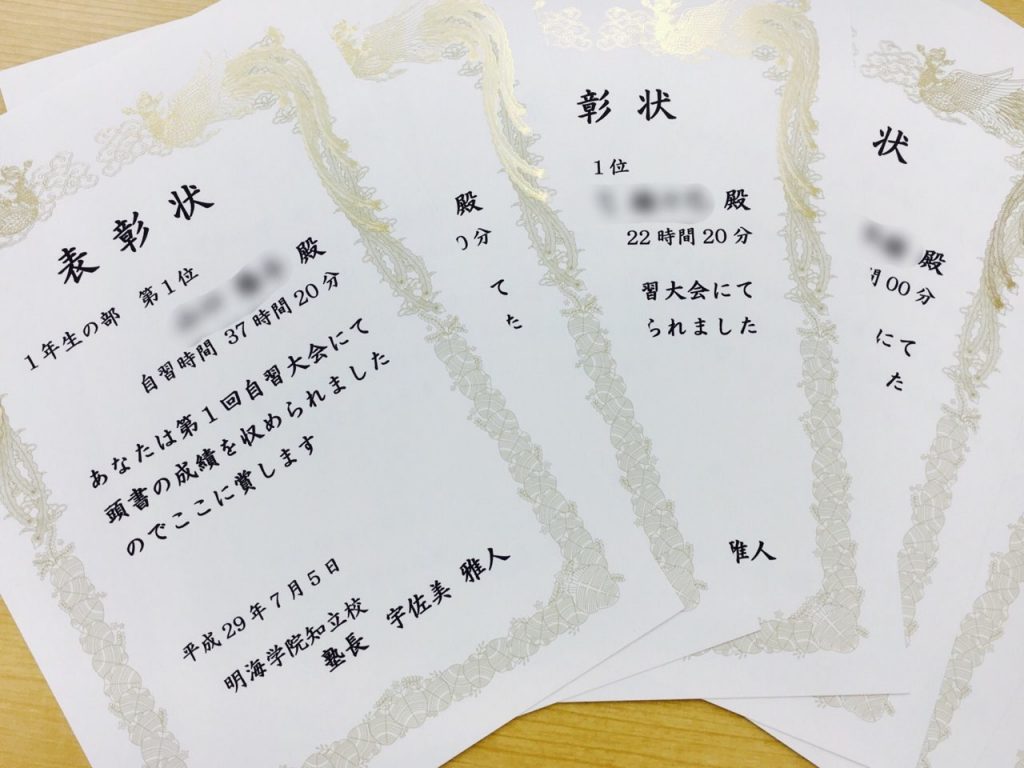 表彰状
1年生の部 第1位
殿
自習時間 37時間20分
あなたは第1回自習大会にて
頭書の成績を収められました
のでここに賞します
平成29年7月5日
明海学院知立校
塾長 宇佐美 雅人
殿
0分
て
た
彰状
1位
殿
22時間20分
習大会にて
られました
雅人
状
殿
間00分
にて
た